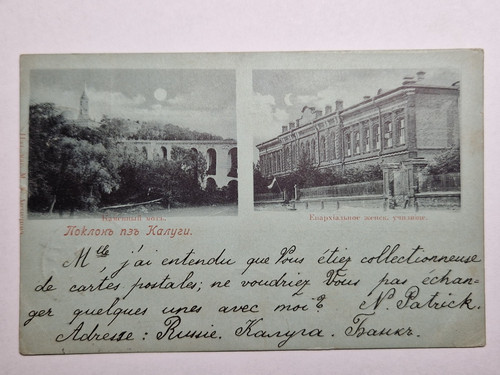 Каменный мостъ.
Епархіальное женск. училище.
Поклонъ изъ Калуги.
Mlle, j'ai entendu que Vous étiez collectionneuse
de cartes postales; ne voudriez Vous pas échan-
ger quelques unes avec moi? N. Patrick.
Adresse: Russie. Калуга. Банкъ.